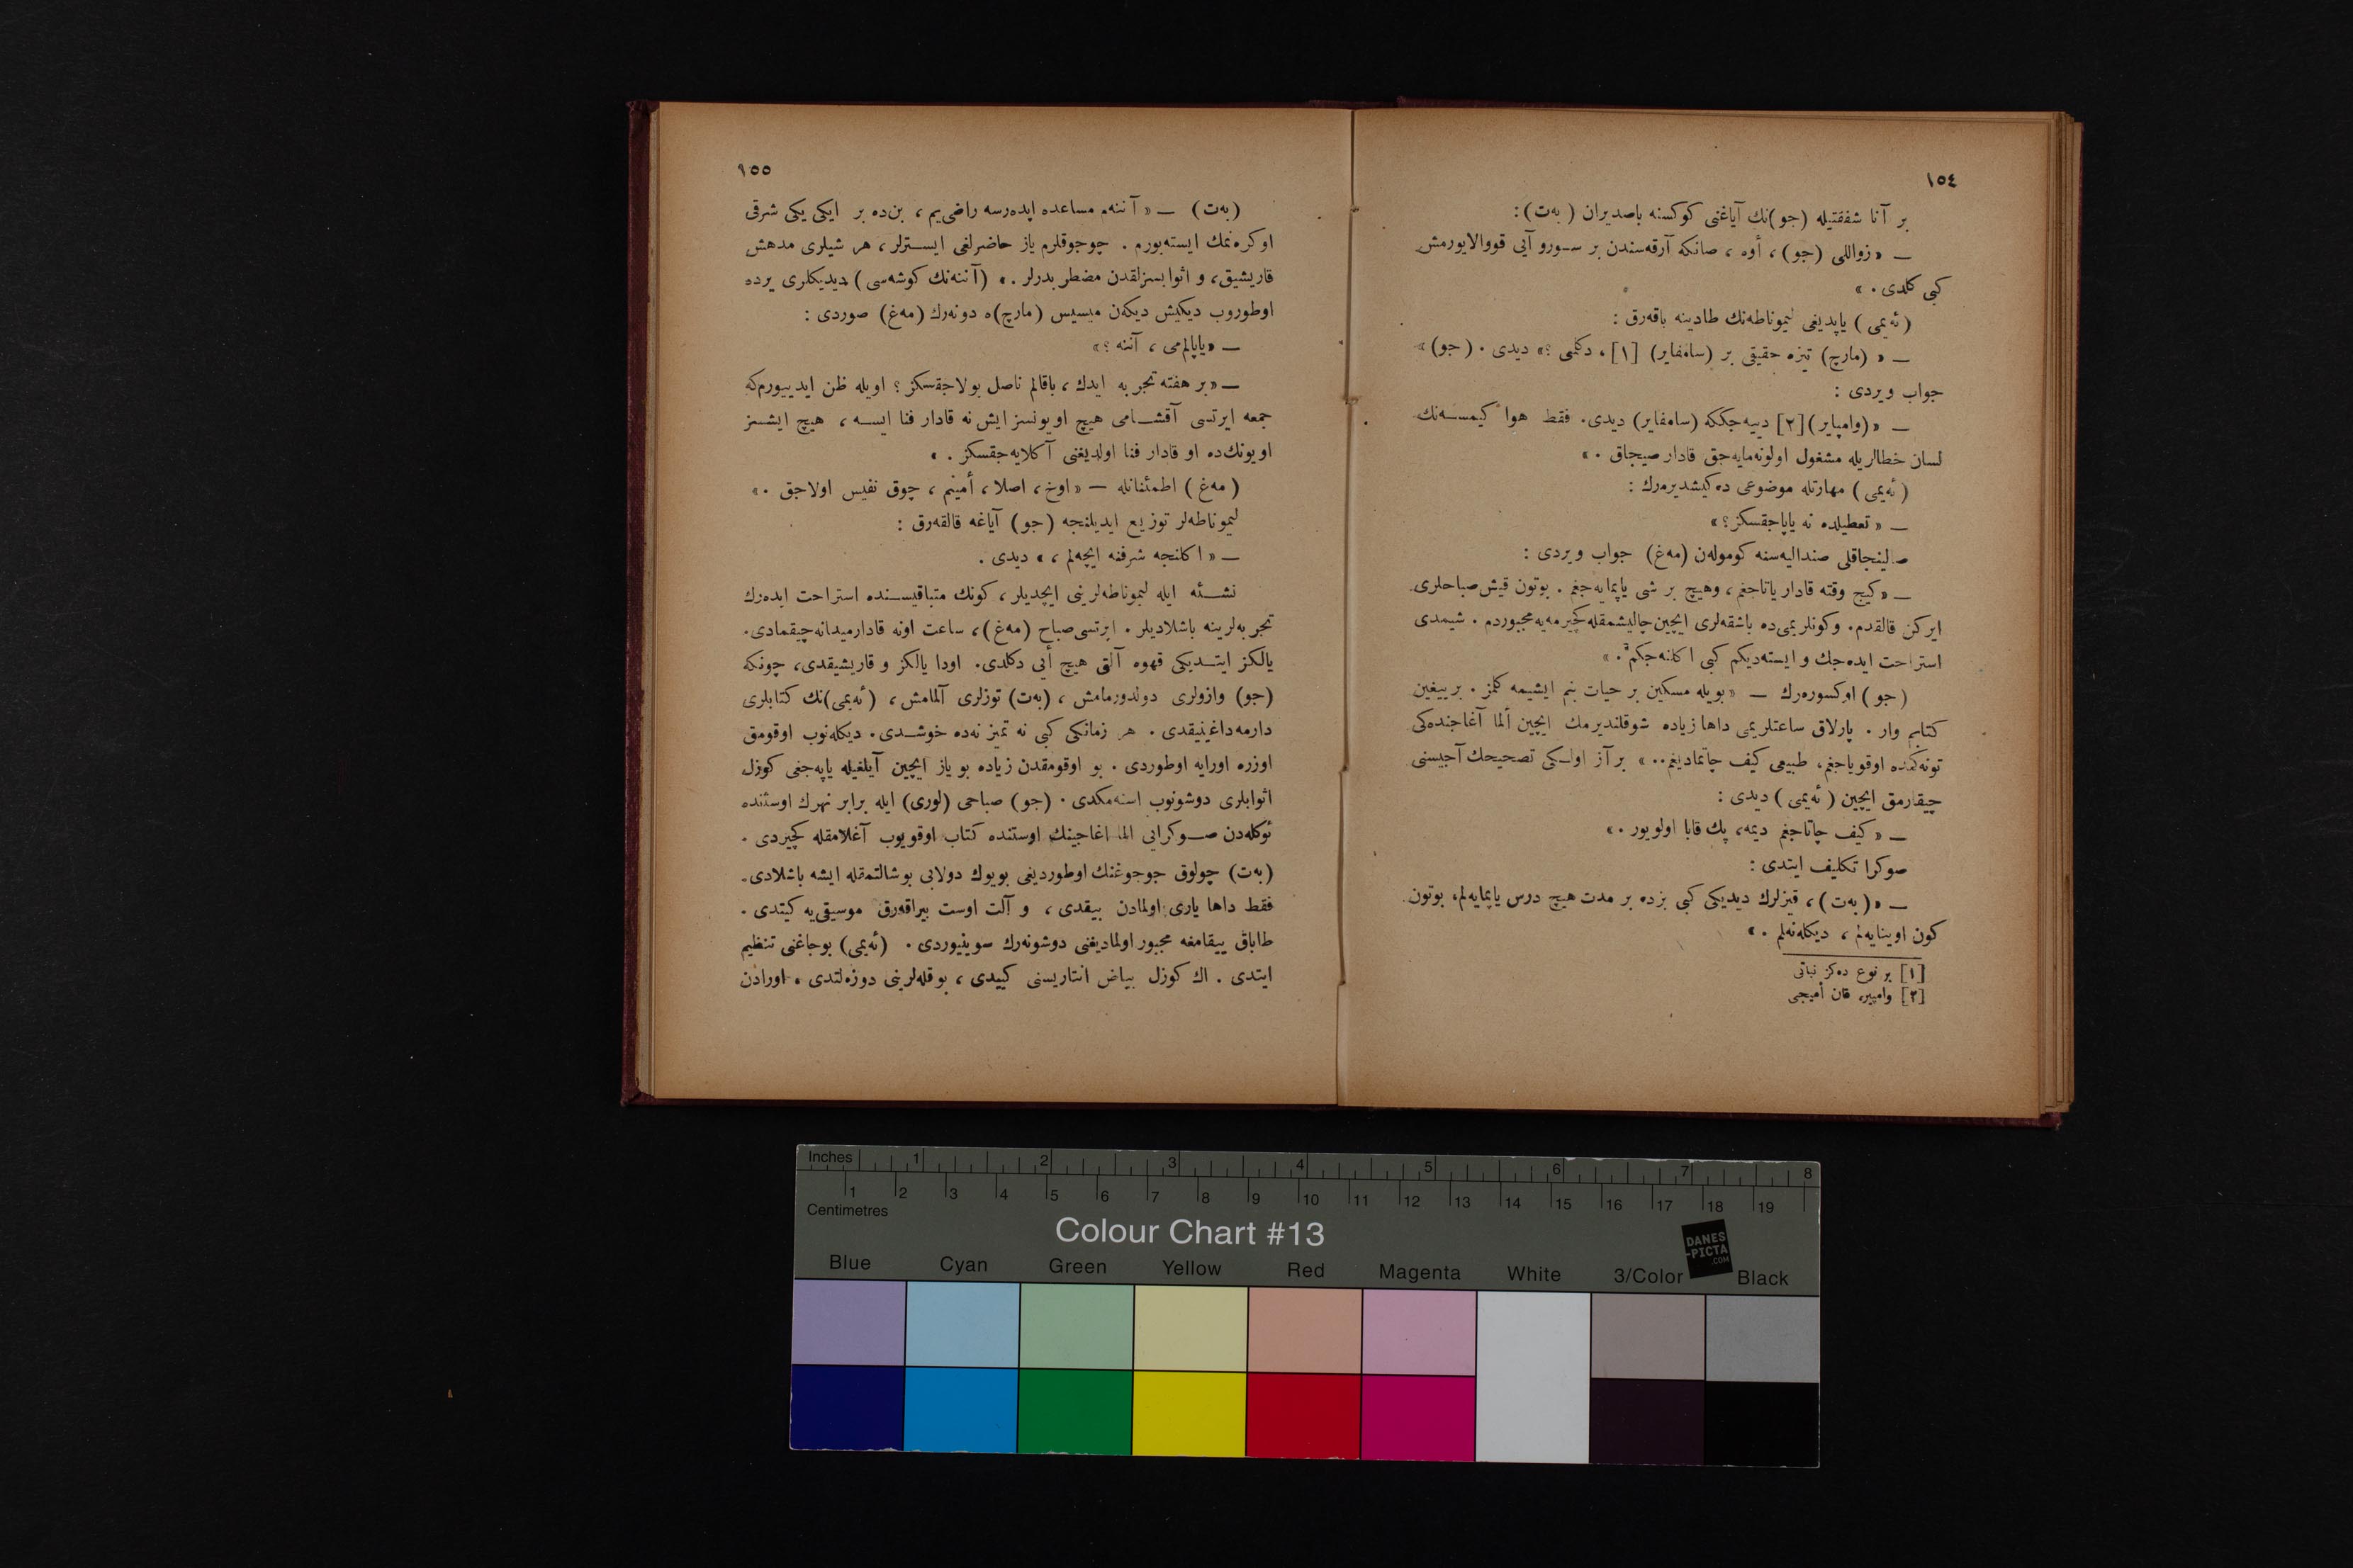 ١٥٤
بر آنا شفقتيله (جو)نك آياغنى كوكسنه باصديران (بەت):
— «زواللى (جو)، أوه، صانكه آرقەسندن بر سورو آيى قووالايورمش
كبى كلدى.»
(ئەيمى) ياپديغى ليموناطەنك طادينه باقەرق:
— «(مارچ) تيزه حقيقى بر (سامفاير) [١]، دكلمى؟» ديدى. (جو)
جواب ويردى:
— «(وامپاير) [٢] دييەجككه (سامفاير) ديدى. فقط هوا كيمسەنك
لسان خطالريله مشغول اولونەمايەجق قادار صيجاق.»
(ئەيمى) مهارتله موضوعى دەكيشديرەرك:
— «تعطيلده نه ياپاجقسكز؟»
صالينجاقلى صنداليەسنه كومولەن (مەغ) جواب ويردى:
— «كيج وقته قادار ياتاجغم، وهيچ بر شى ياپمايەجغم. بوتون قيش صباحلرى
ايركن قالقدم. وكونلريمى ده باشقەلرى ايچين چاليشمقله كچيرمەيه مجبوردم. شيمدى
استراحت ايدەجك و ايستەديكم كبى اكلنەجكم.»
(جو) اوكسورەرك — «بويله مسكين بر حيات بنم ايشيمه كلمز. بر ييغين
كتابم وار. پارلاق ساعتلريمى داها زياده شوقلنديرمك ايچين ألما آغاجندەكى
تونەكمده اوقوياجغم، طبيعى كيف چاتماديغم..» بر آز اولكى تصحيحك آجيسنى
چيقارمق ايچين (ئەيمى) ديدى:
— «كيف چاتاجغم ديمه، پك قابا اولويور.»
صوكرا تكليف ايتدى:
— «(بەت)، قيزلرك ديديكى كبى بزده بر مدت هيچ درس ياپمايەلم، بوتون
كون اوينايەلم، ديكلەنەلم.»
[١] بر نوع دەكز نباتى
[٢] وامپير، قان أميجى
١٥٥
(بەت) — «آننەم مساعده ايدەرسه راضىيم، بن ده بر ايكى يكى شرقى
اوكرەنمك ايستەيورم. چوجوقلرم ياز حاضرلغى ايسترلر، هر شيلرى مدهش
قاريشيق، و اثوابسزلقدن مضطربدرلر.» (آننەنك كوشەسى) ديديكلرى يرده
اوطوروب ديكيش ديكەن ميسيس (مارچ)ه دونەرك (مەغ) صوردى:
— «ياپالم مى، آننه؟»
— «بر هفته تجربه ايدك، باقالم ناصل بولاجقسكز؟ اويله ظن ايدييورم كه
جمعه ايرتسى آقشامى هيچ اويونسز ايش نه قادار فنا ايسه، هيچ ايشسز
اويونك ده او قادار فنا اولديغنى آكلايەجقسكز.»
(مەغ) اطمئنانله — «اوخ، اصلا، أمينم، چوق نفيس اولاجق.»
ليموناطەلر توزيع ايديلنجه (جو) آياغه قالقەرق:
— «اكلنجه شرفنه ايچەلم،» ديدى.
نشئه ايله ليموناطەلرينى ايچديلر، كونك متباقيسنده استراحت ايدەرك
تجربەلرينه باشلاديلر. ايرتسى صباح (مەغ)، ساعت اونه قادار ميدانه چيقمادى.
يالكز ايتديكى قهوه آلتى هيچ أيى دكلدى. اودا يالكز و قاريشيقدى، چونكه
(جو) وازولرى دولدورمامش، (بەت) توزلرى آلمامش، (ئەيمى)نك كتابلرى
دارمەداغينيقدى. هر زمانكى كبى نه تميز نەده خوشدى. ديكلەنوب اوقومق
اوزره اورايه اوطوردى. بو اوقومقدن زياده بو ياز ايچين آيلغيله ياپەجغى كوزل
اثوابلرى دوشونوب اسنەمكدى. (جو) صباحى (لورى) ايله برابر نهرك اوستنده
ئوكلەدن صوكرايى الما اغاجينك اوستنده كتاب اوقويوب آغلامقله كچيردى.
(بەت) چولوق جوجوغنك اوطورديغى بويوك دولابى بوشالتمقله ايشه باشلادى.
فقط داها يارى اولمادن بيقدى، و آلت اوست بيراقەرق موسيقىيه كيتدى.
طاباق ييقامغه مجبور اولماديغنى دوشونەرك سوينيوردى. (ئەيمى) بوجاغنى تنظيم
ايتدى. اك كوزل بياض انتاريسنى كييدى، بوقلەلرينى دوزەلتدى، اورادن
Inches 1 2 3 4 5 6 7 8
1 2 3 4 5 6 7 8 9 10 11 12 13 14 15 16 17 18 19
Centimetres
Colour Chart #13
DANES
-PICTA
.COM
Blue Cyan Green Yellow Red Magenta White 3/Color Black